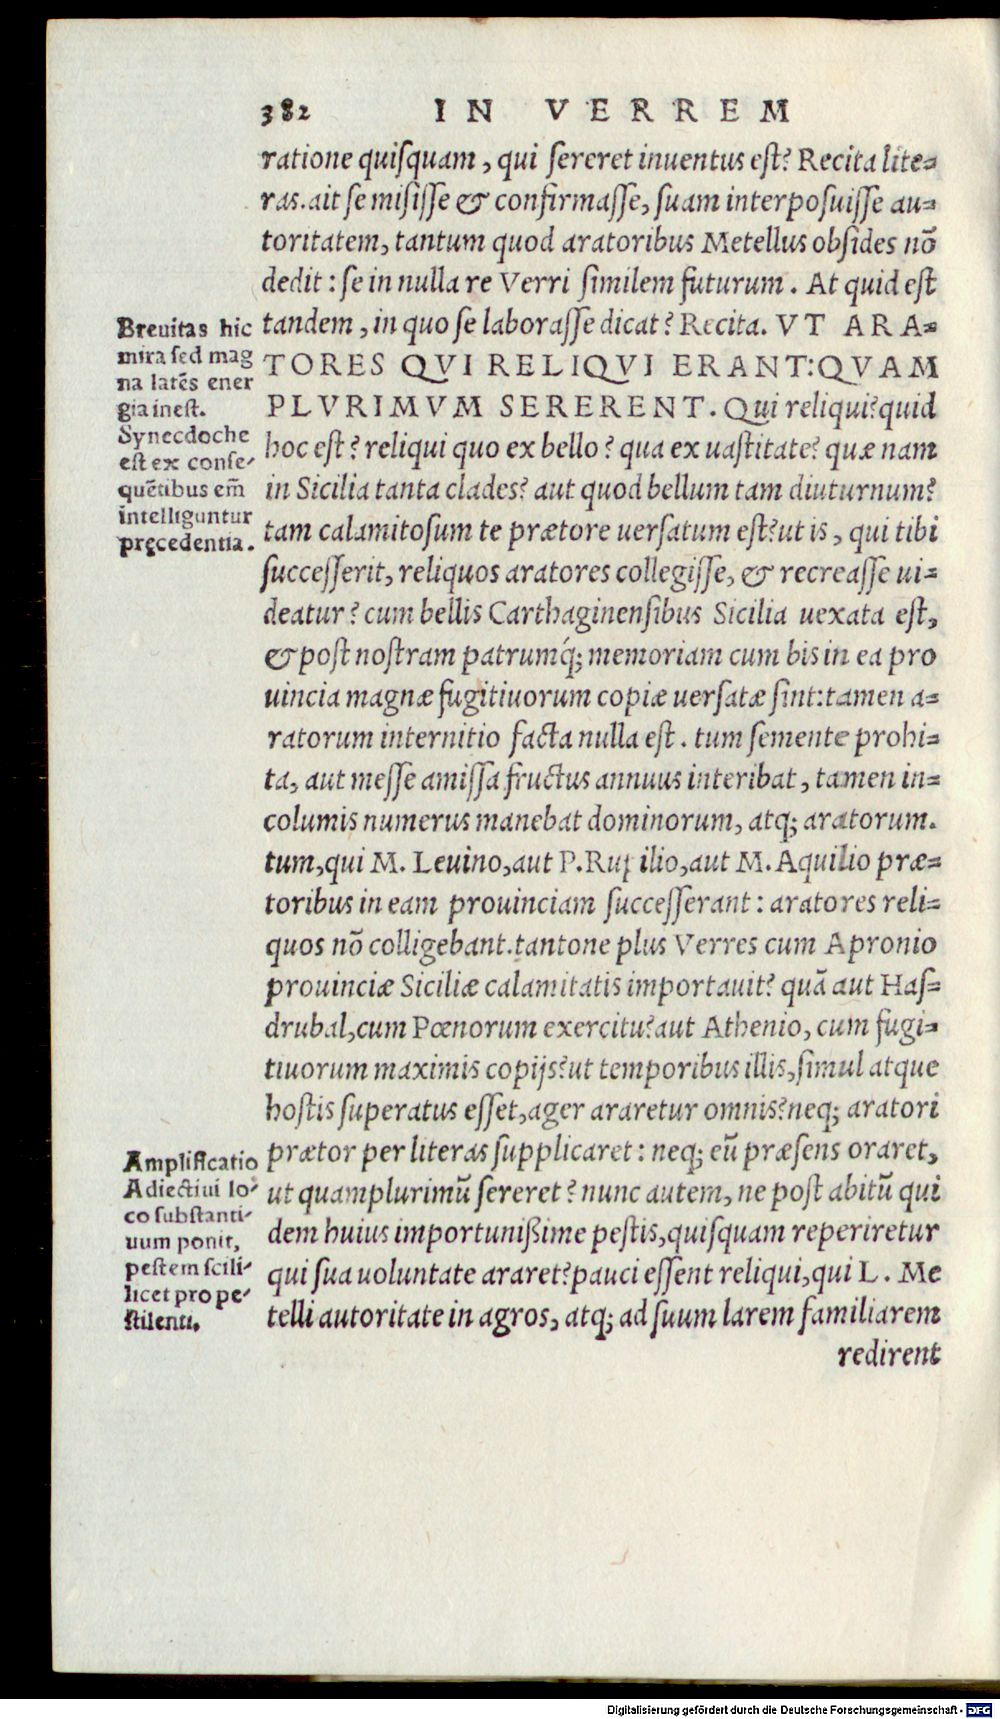 382 IN VERREM
ratione quiſquam, qui ſereret inuentus est? Recita lite=
ras. ait ſe miſiſſe & confirmaſſe, ſuam interpoſuiſſe au=
toritatem, tantum quod aratoribus Metellus obſides nō
dedit: ſe in nulla re Verri ſimilem futurum. At quid eſt
tandem, in quo ſe laboraſſe dicat? Recita. VT ARA=
TORES QVI RELIQVI ERANT: QVAM
PLVRIMVM SERERENT. Qui reliqui? quid
hoc eſt? reliqui quo ex bello? qua ex uaſtitate? quæ nam
in Sicilia tanta clades? aut quod bellum tam diuturnum?
tam calamitoſum te prætore uerſatum eſt? ut is, qui tibi
ſucceſſerit, reliquos aratores collegiſſe, & recreaſſe ui=
deatur? cum bellis Carthaginenſibus Sicilia uexata eſt,
& poſt noſtram patrumq́; memoriam cum bis in ea pro
uincia magnæ fugitiuorum copiæ uerſatæ ſint: tamen a=
ratorum internitio facta nulla eſt. tum ſemente prohi=
ta, aut meſſe amiſſa fructus annuus interibat, tamen in=
columis numerus manebat dominorum, atq; aratorum.
tum, qui M. Leuino, aut P. Rupilio, aut M. Aquilio præ=
toribus in eam prouinciam ſucceſſerant: aratores reli=
quos nō colligebant. tantone plus Verres cum Apronio
prouinciæ Siciliæ calamitatis importauit? quā aut Haſ=
drubal, cum Pœnorum exercitu? aut Athenio, cum fugi=
tiuorum maximis copijs? ut temporibus illis, ſimul atque
hoſtis ſuperatus eſſet, ager araretur omnis? neq; aratori
prætor per literas ſupplicaret: neq; eū præſens oraret,
ut quamplurimū ſereret? nunc autem, ne poſt abitū qui
dem huius importunißime peſtis, quiſquam reperiretur
qui ſua uoluntate araret? pauci eſſent reliqui, qui L. Me
telli autoritate in agros, atq; ad ſuum larem familiarem
redirent
Breuitas hic
mira ſed mag
na latēs ener
gia ineſt.
Synecdoche
eſt ex conſe-
quētibus em̄
intelliguntur
pręcedentia.
Amplificatio
Adiectiui lo-
co ſubſtanti-
uum ponit,
peſtem ſcili-
licet pro pe-
ſtilenti.
Digitalisierung gefördert durch die Deutsche Forschungsgemeinschaft - DFG